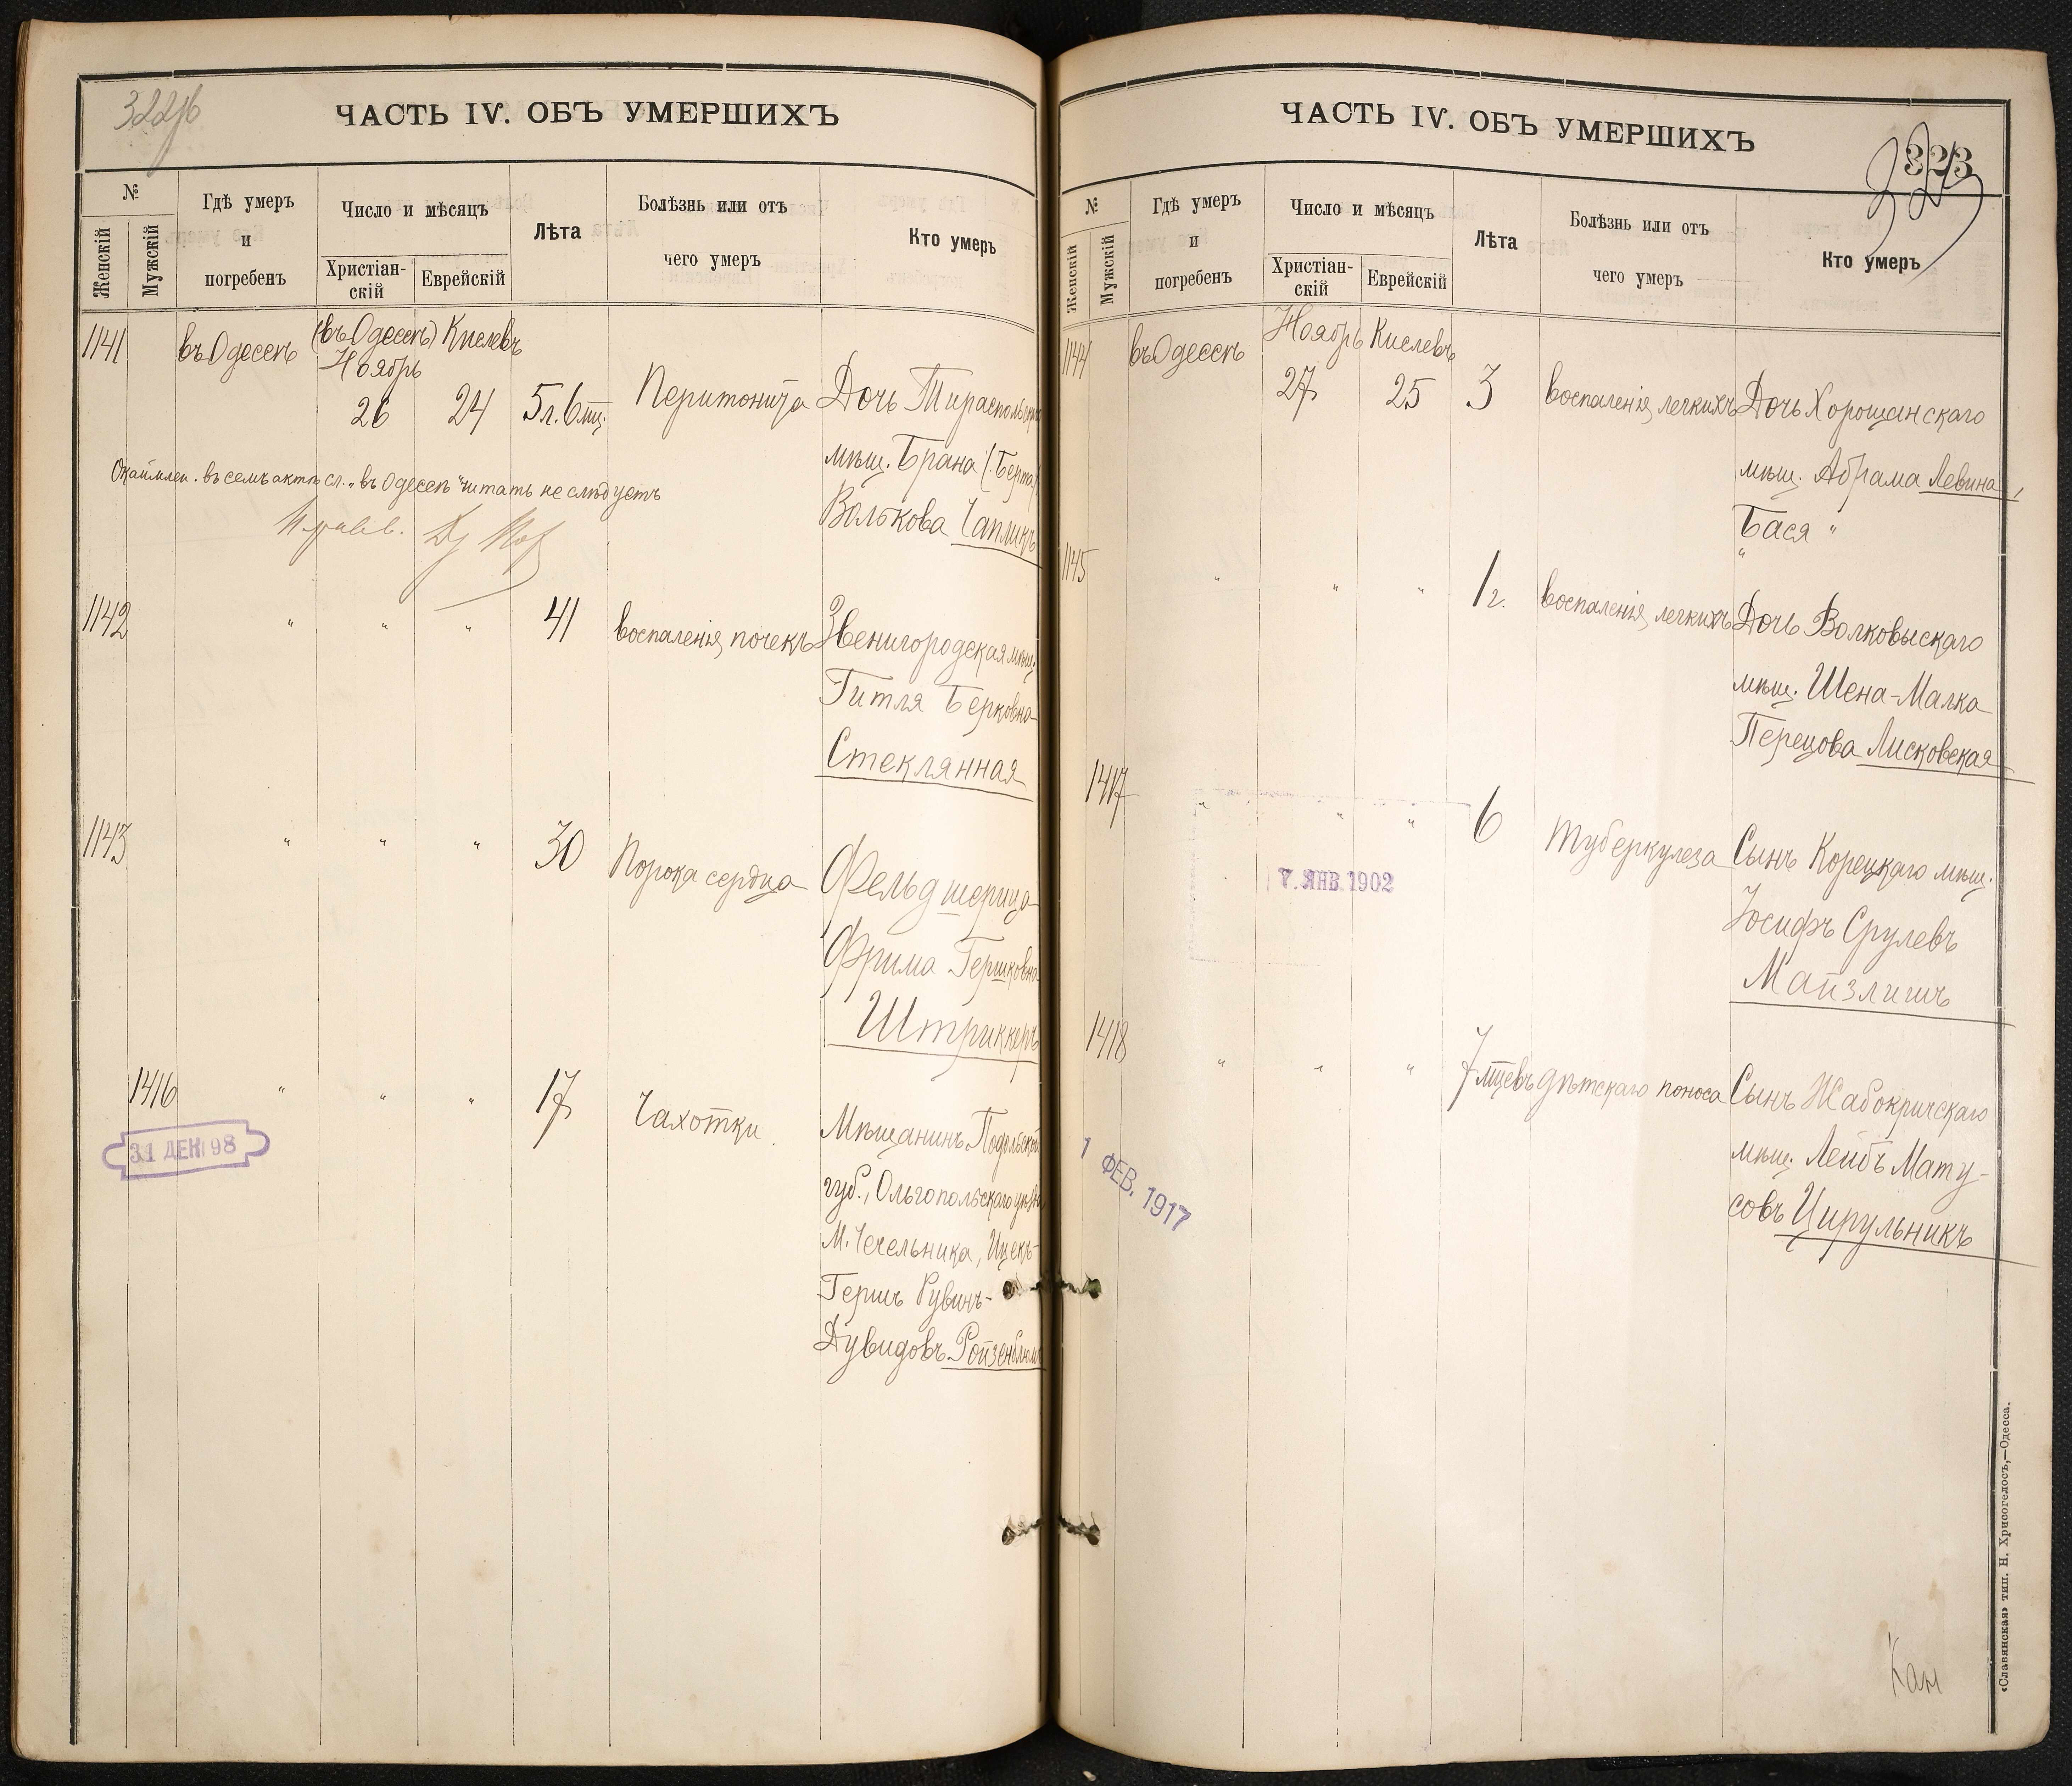 322 об
ЧАСТЬ IV. ОБЪ УМЕРШИХЪ
№
Женскій
Мужскій
Гдѣ умеръ
и
погребенъ
Число и мѣсяцъ
Христіан-
скій
Еврейскій
Лѣта
Болѣзнь или отъ
чего умеръ
Кто умеръ
1141
въ Одессѣ
(въ Одессѣ) Кислевъ
Ноябрь
26 24 5 л. 6 мц.
Перитонита
Дочь Тираспольскаго
мѣщ. Брана (Берта)
Волькова Чапликъ
Окаймлен. въ семъ актѣ сл. „въ Одессѣ" читать не слѣдуетъ
1142 " " " 41 воспаленія почекъ Звенигородская мѣщ.
Гитля Берковна
Стеклянная
1143 " " " 30 Порока сердца Фельдшерица
Фрима Гершковна
Штриккеръ
1416 " " " 17 Чахотки. Мѣщанинъ Подольской
губ., Ольгопольскаго уѣзда
М. Чечельника, Ицекъ-
Гершъ Рувинъ-
Дувидовъ Ройзенблюмъ
31 ДЕК 98
ЧАСТЬ IV. ОБЪ УМЕРШИХЪ
323
№
Женскій
Мужскій
Гдѣ умеръ
и
погребенъ
Число и мѣсяцъ
Христіан-
скій
Еврейскій
Лѣта
Болѣзнь или отъ
чего умеръ
Кто умеръ
1144
въ Одессѣ
Ноябрь Кислевъ
27 25 3 воспаленія легкихъ Дочь Хорощанскаго
мѣщ. Абрама Левина,
Бася "
1145 " " " 1 г. воспаленія легкихъ Дочь Волковыскаго
мѣщ. Шена-Малка
Перецова Лисковская
1417 " " " 6 Туберкулеза Сынъ Корецкаго мѣщ.
Іосифъ Срулевъ
Майзлишъ
7. ЯНВ. 1902
1418 " " " 7 мцевъ дѣтскаго поноса Сынъ Жабокричскаго
мѣщ. Лейбъ Мату-
совъ Цирульникъ
1 ФЕВ. 1917
Кан
«Славянская» тип. Н. Хрисогелосъ,—Одесса.